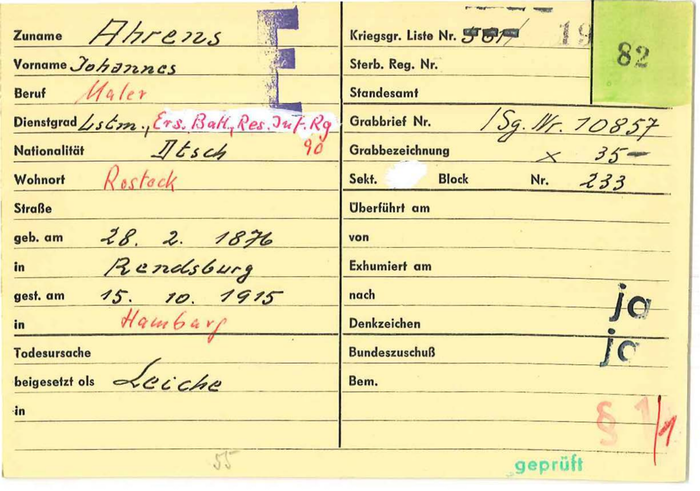 Zuname Ahrens
Vorname Johannes
Beruf Maler
Dienstgrad Lstm., Ers. Batl., Res. Inf. Rg 90
Nationalität Dtsch
Wohnort Rostock
Straße
geb. am 28. 2. 1876
in Rendsburg
gest. am 15. 10. 1915
in Hamburg
Todesursache
beigesetzt als Leiche
in
55
E
Kriegsgr. Liste Nr. 19 82
Sterb. Reg. Nr.
Standesamt
Grabbrief Nr. /Sg. Nr. 10857
Grabbezeichnung x 35-
Sekt. Block Nr. 233
Überführt am
von
Exhumiert am
nach
Denkzeichen ja
Bundeszuschuß ja
Bem.
§ 1/1
geprüft